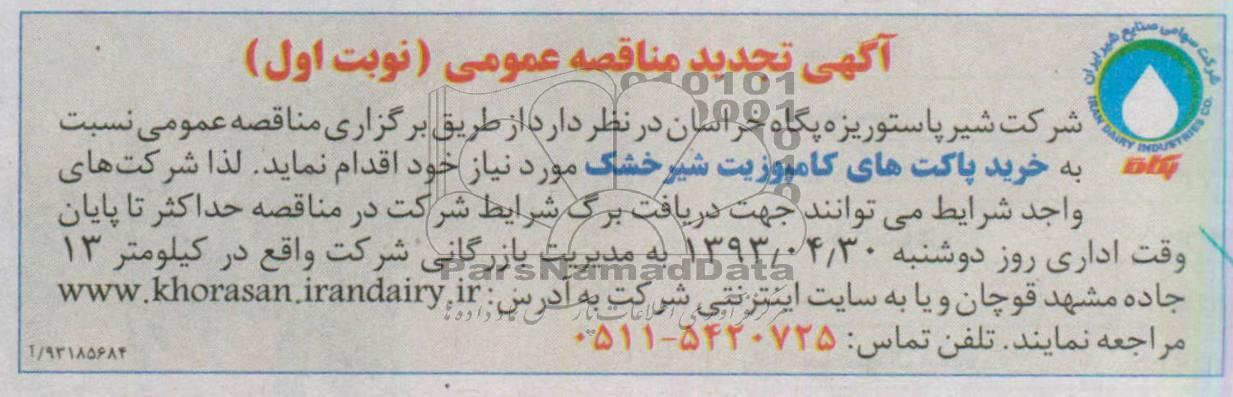 آگهی تجدید مناقصه عمومی (نوبت اول)
شرکت سهامی صنایع شیر ایران
IRAN DAIRY INDUSTRIES CO.
پگاه
شرکت شیر پاستوریزه پگاه خراسان در نظر دارد از طریق برگزاری مناقصه عمومی نسبت
به خرید پاکت های کامپوزیت شیرخشک مورد نیاز خود اقدام نماید. لذا شرکت‌های
واجد شرایط می توانند جهت دریافت برگ شرایط شرکت در مناقصه حداکثر تا پایان
وقت اداری روز دوشنبه ۱۳۹۳/۰۴/۳۰ به مدیریت بازرگانی شرکت واقع در کیلومتر ۱۳
جاده مشهد قوچان و یا به سایت اینترنتی شرکت به آدرس: www.khorasan.irandairy.ir
مراجعه نمایند. تلفن تماس: ۰۵۱۱-۵۴۲۰۷۲۵
۹۳۱۸۵۶۸۴/آ
ParsNamadData